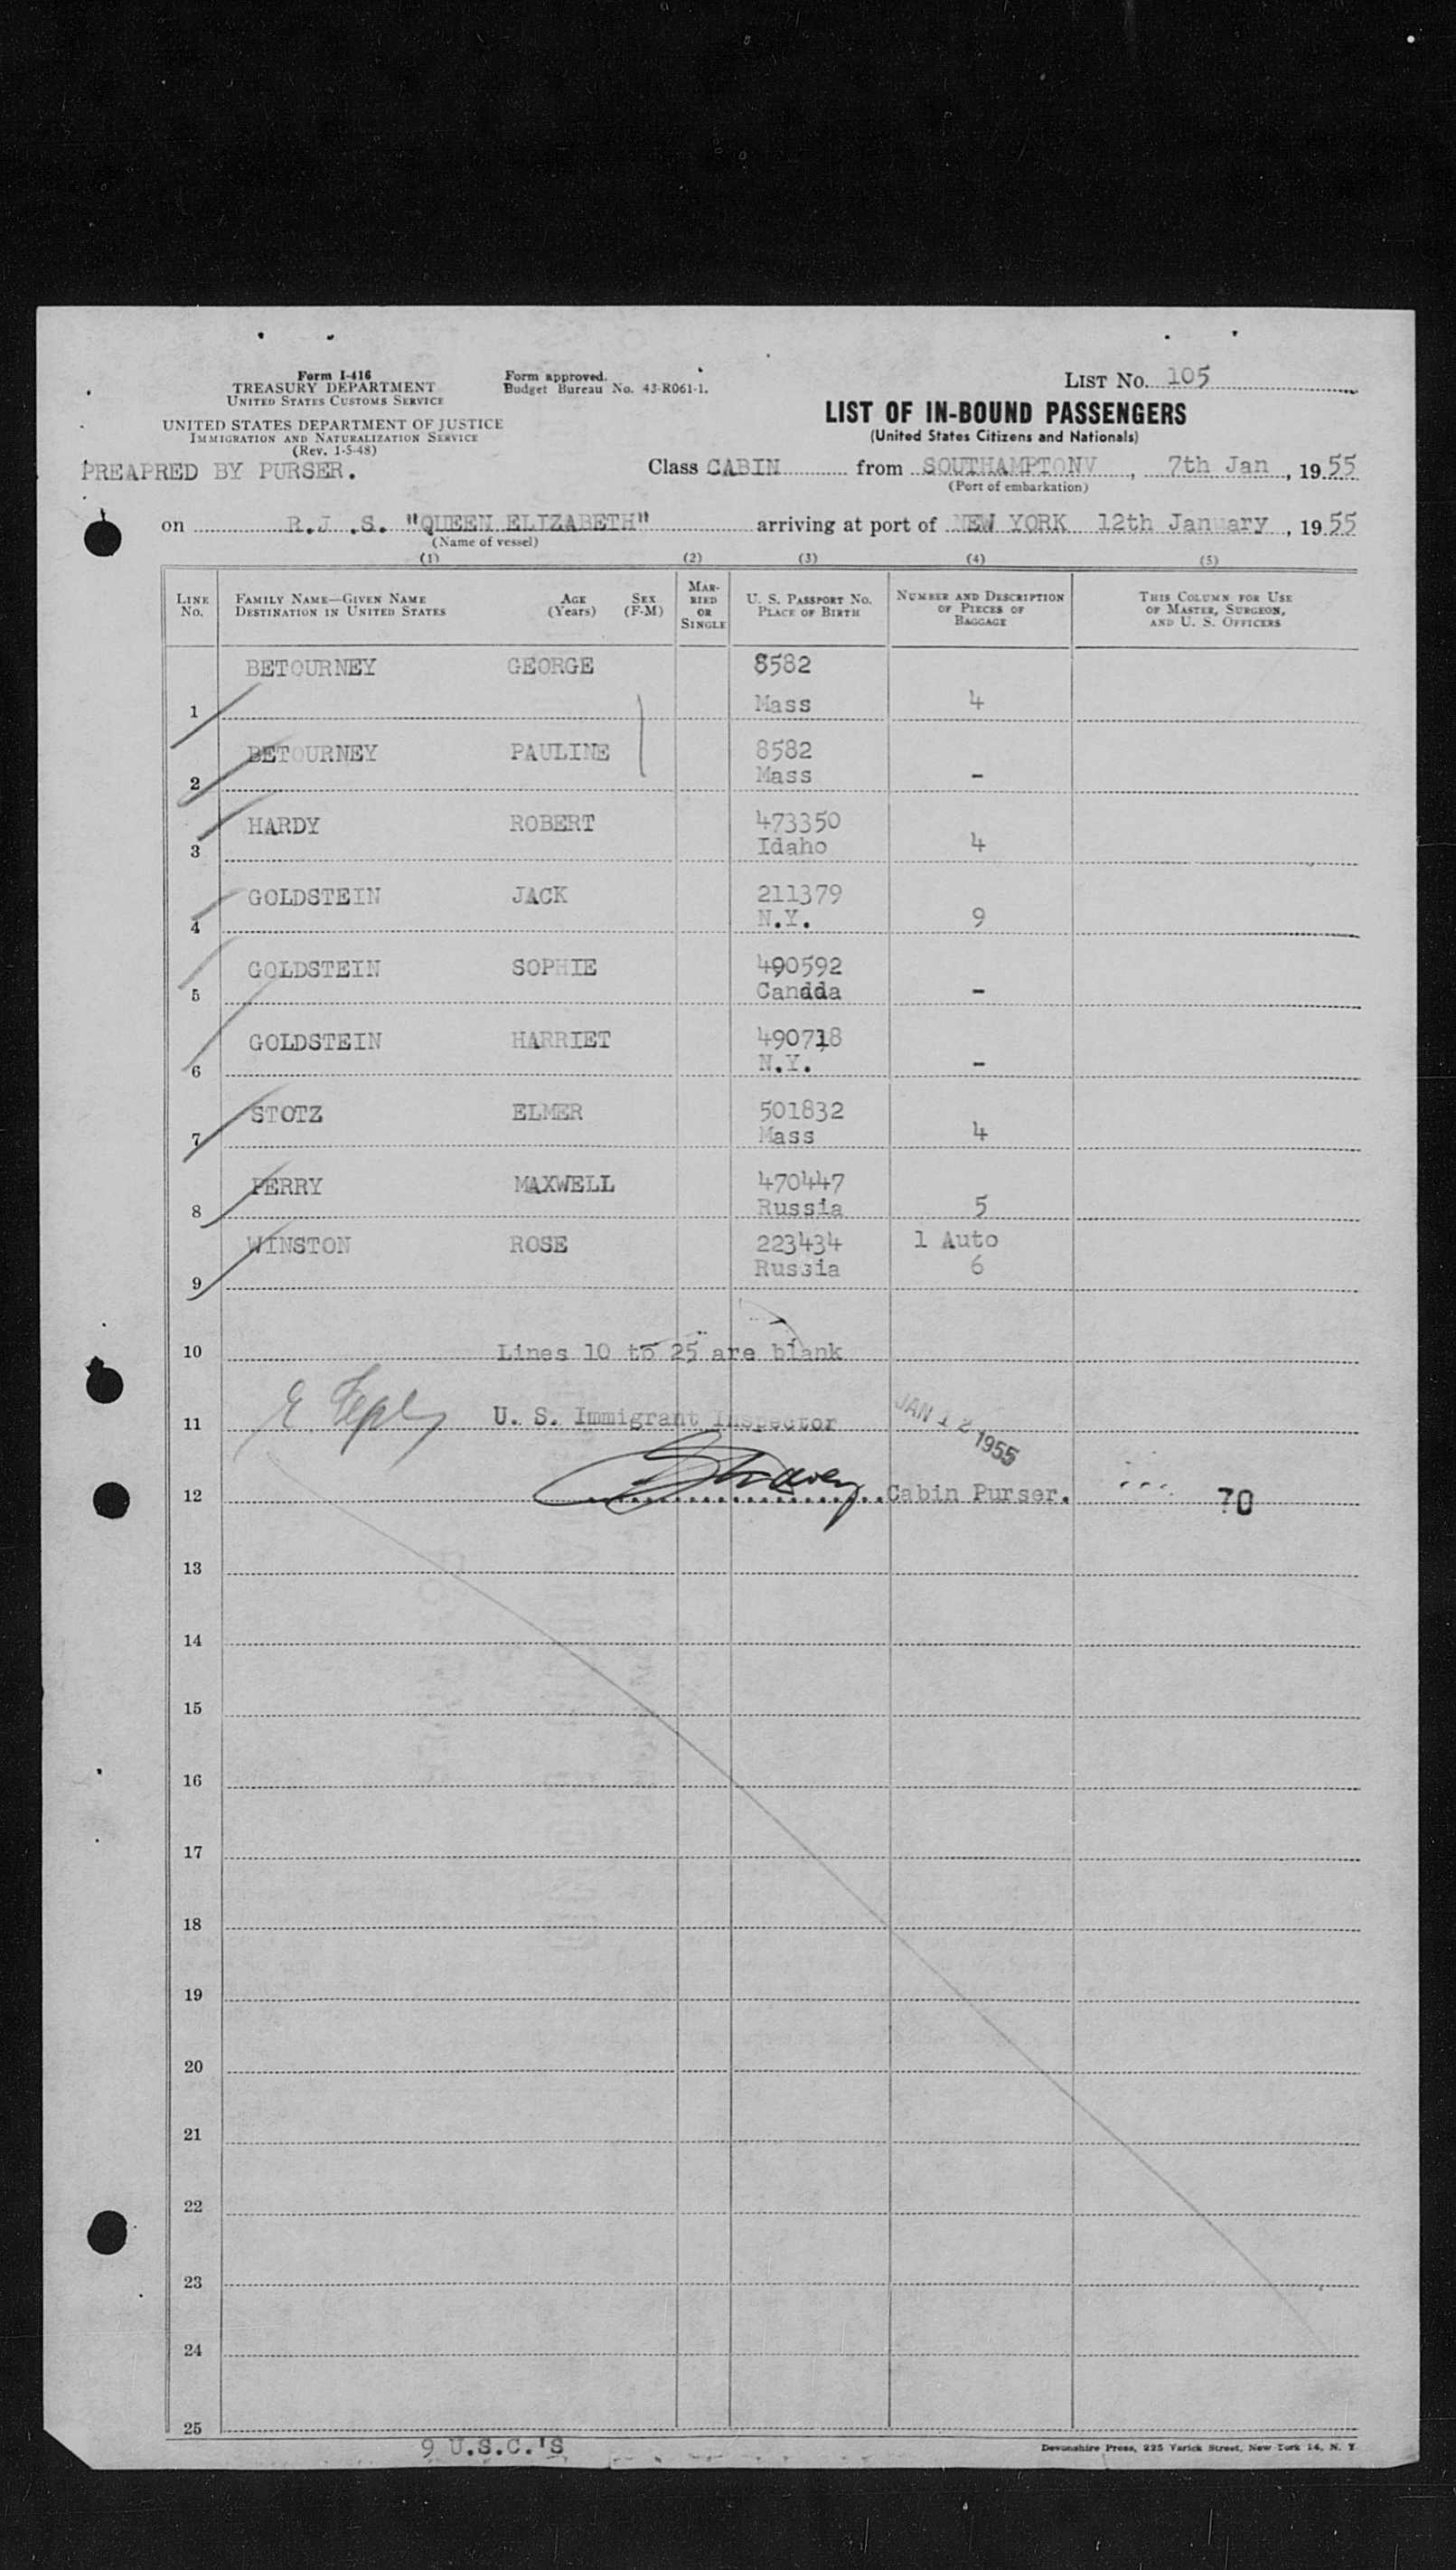 Form I-416
TREASURY DEPARTMENT
UNITED STATES CUSTOMS SERVICE
UNITED STATES DEPARTMENT OF JUSTICE
IMMIGRATION AND NATURALIZATION SERVICE
(Rev. 1-5-48)
Form approved.
Budget Bureau No. 43-R061-1.
LIST NO. 105
LIST OF IN-BOUND PASSENGERS
(United States Citizens and Nationals)
PREAPRED BY PURSER.
Class CABIN from SOUTHAMPTONV, 7th Jan, 1955
(Port of embarkation)
on R. .S. "QUEEN ELIZABETH" arriving at port of NEW YORK 12th January, 1955
(Name of vessel)
(1) (2) (3) (4) (5)
LINE NO.
FAMILY NAME—GIVEN NAME
DESTINATION IN UNITED STATES
AGE (Years)
SEX (F-M)
MARRIED OR SINGLE
U. S. PASSPORT NO.
PLACE OF BIRTH
NUMBER AND DESCRIPTION OF PIECES OF BAGGAGE
THIS COLUMN FOR USE OF MASTER, SURGEON, AND U. S. OFFICERS
BETOURNEY GEORGE 8582
1 Mass 4
BETOURNEY PAULINE 8582
2 Mass -
HARDY ROBERT 473350
3 Idaho 4
GOLDSTEIN JACK 211379
4 N.Y. 9
GOLDSTEIN SOPHIE 490592
5 Candda -
GOLDSTEIN HARRIET 490718
6 N.Y. -
STOTZ ELMER 501832
7 Mass 4
PERRY MAXWELL 470447
8 Russia 5
WINSTON ROSE 223434 1 Auto
9 Russia 6
10 Lines 10 to 25 are blank
11 U. S. Immigrant Inspector JAN 12 1955
12 Cabin Purser. 70
13
14
15
16
17
18
19
20
21
22
23
24
25
9 U.S.C.'S
Devonshire Press, 225 Varick Street, New York 14, N. Y.